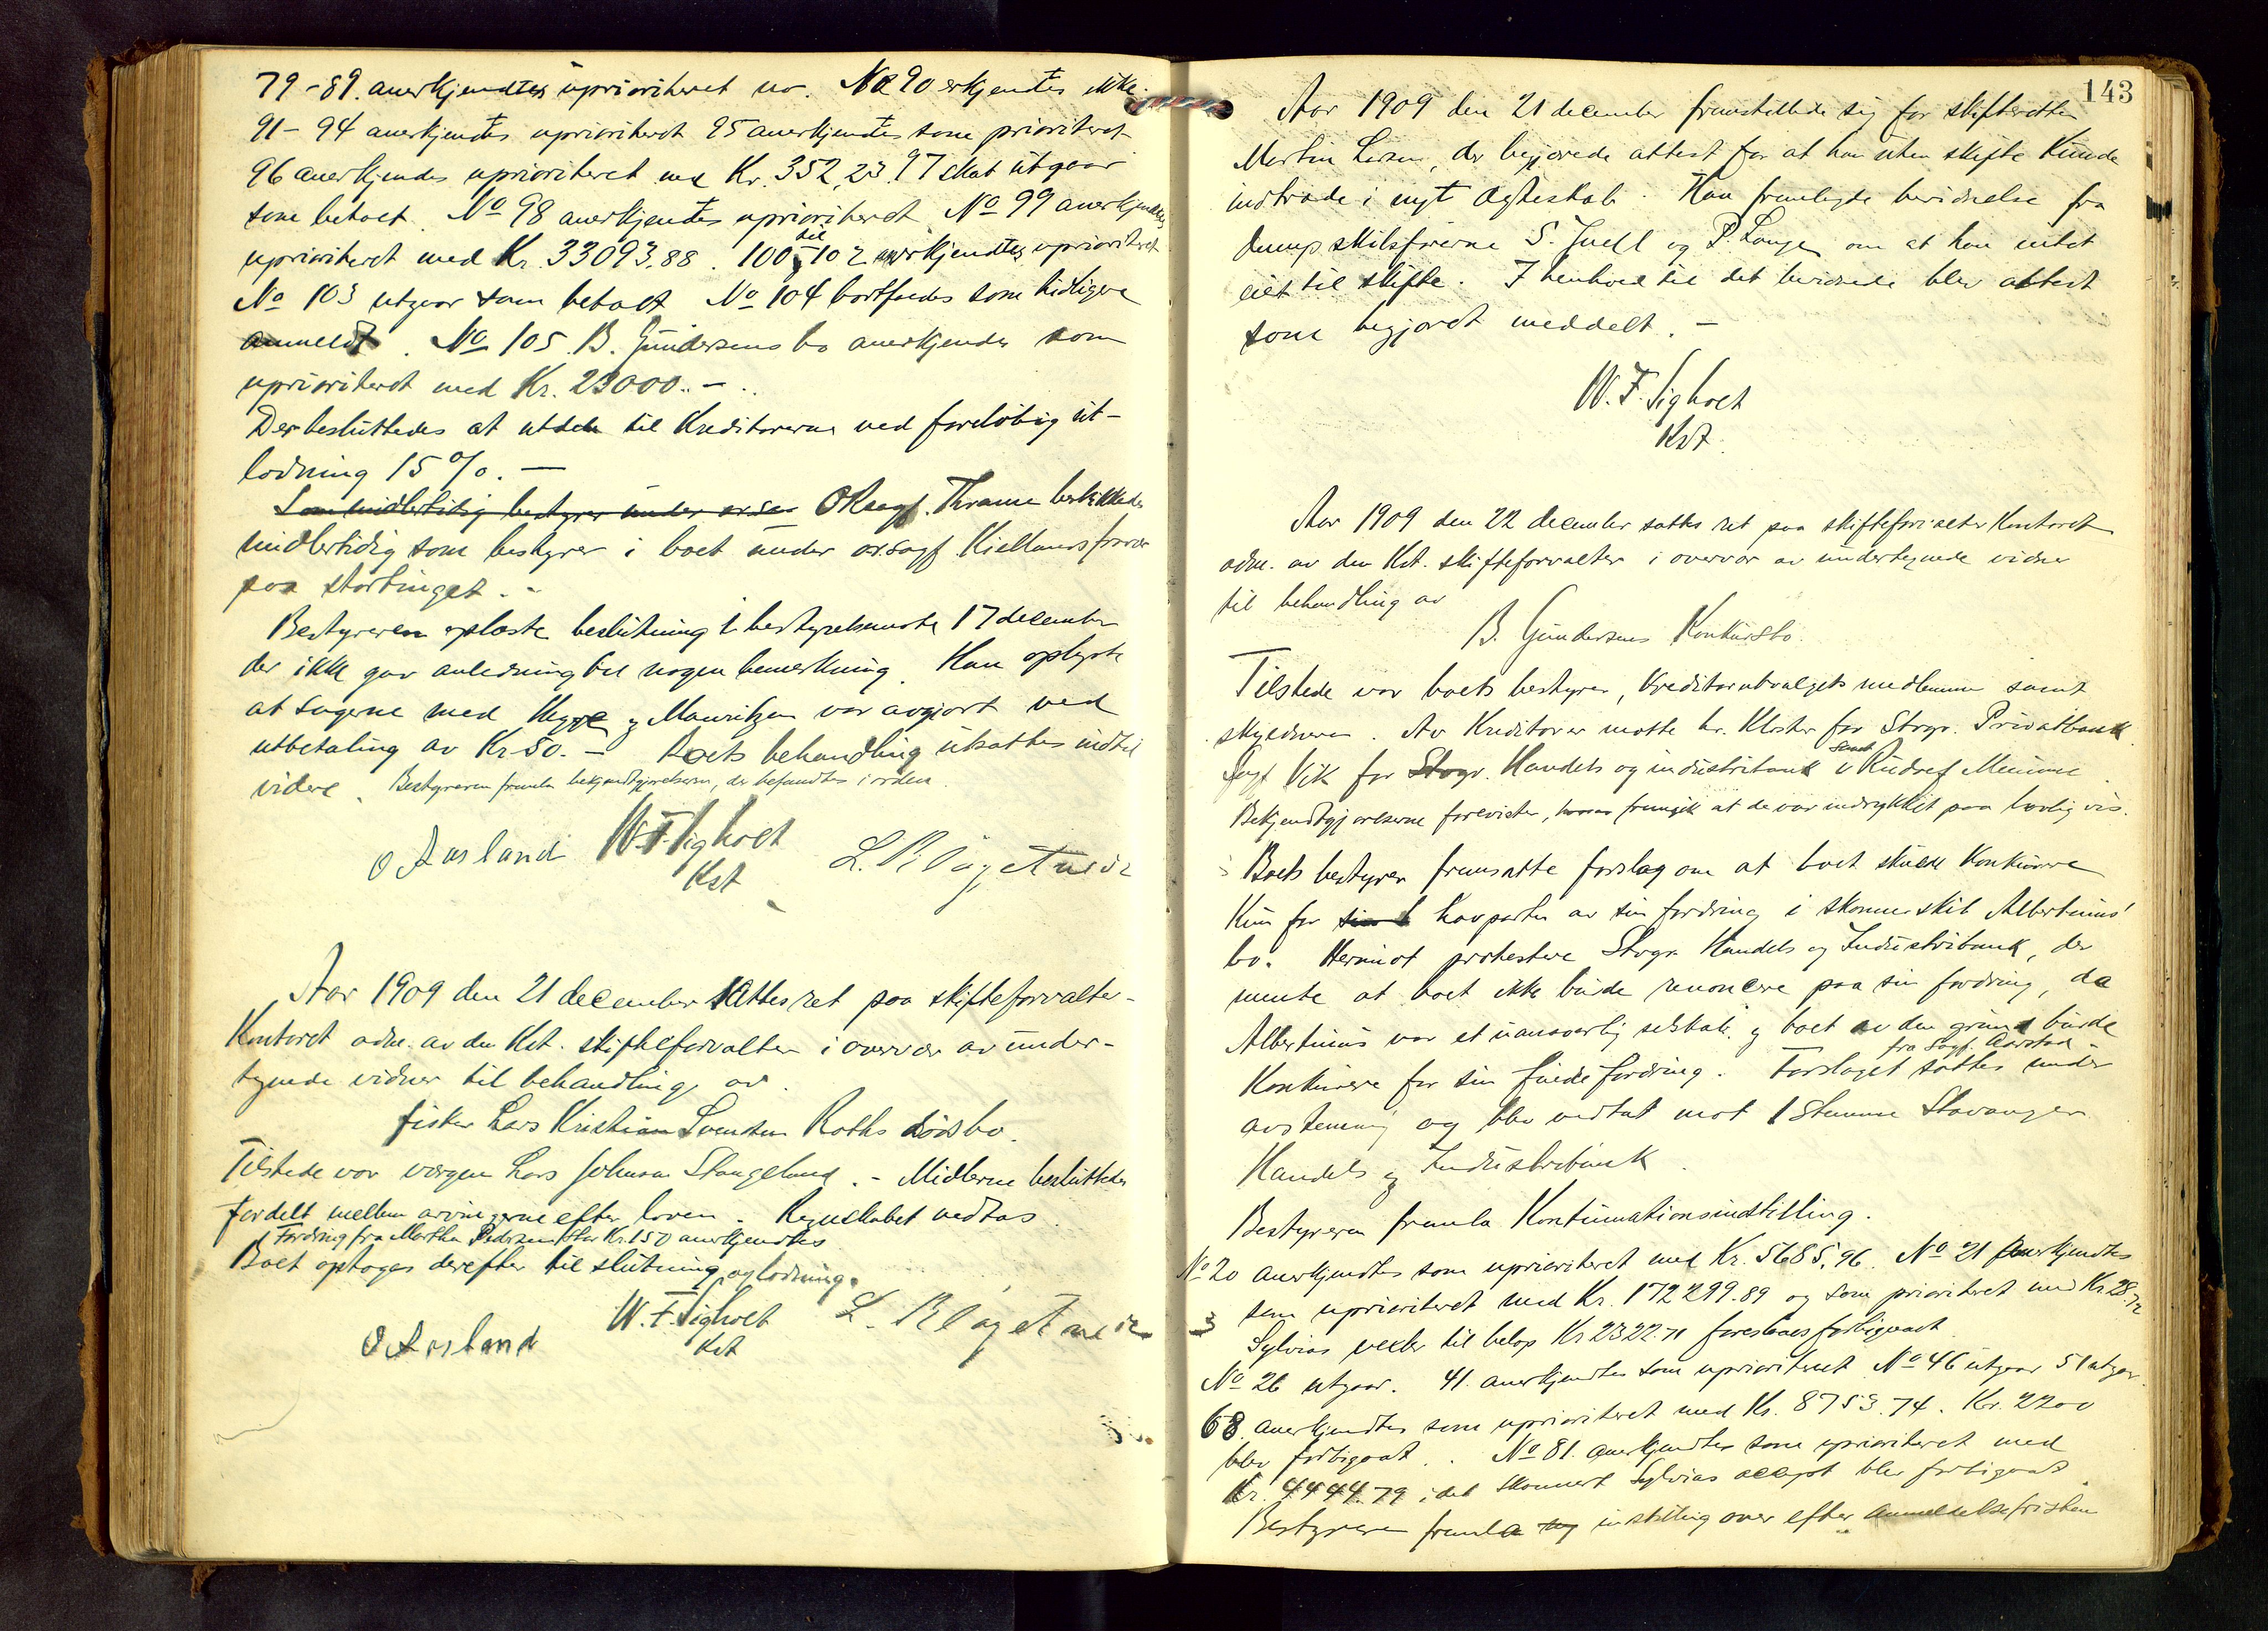 79-89. anerkjendtes uprioritert no. No 90 erkjentes ikke.
91-94 anerkjentes uprioriteret 95 anerkjentes som prioriteret
96 anerkjendes uprioriteret med Kr. 352,23. 97 skat utgaar
som betalt. No 98 anerkjentes uprioriteret No 99 anerkjendtes
uprioriteret med Kr. 33093.88. 100 til 102 anerkjendtes uprioriteret
No 103 utgaar som betalt No 104 bortfaldes som tidligere
anmeldt. No 105 B. Gundersens bo anerkjendes som
uprioriteret med Kr. 23000.-.
Der besluttedes at utdele til Kreditorerne ved foreløbig ut-
lodning 15%. -
Som midlertidig bestyrer under O Rsagf. Thrane beskikkedes
midlertidig som bestyrer i boet under o.r.sagf Kiellands fravær
paa stortinget. -
Bestyreren oplæste beslutning i bestyrelsesmøte 17 december
der ikke gav anledning til nogen bemerkning. Han oplyste
at sagerne med Hegge og Mauritzen var avgjort ved
utbetaling av Kr 50. - Boets behandling utsattes indtil
videre. Bestyreren fremla bekjendtgjørelserne, der befandtes i orden.
O Aasland W.F. Sigholt
Kst
Aar 1909 den 21 december sattes ret paa skifteforvalter-
Kontoret adm. av den Kst. skifteforvalter i overvær av under-
tegnede vidner til behandling av
fisker Lars Kristian Svendsen Roths dødsbo.
Tilstede var vergen Lars Johnsen Stangeland. - Midlerne besluttedes
fordelt mellem arvingerne efter loven. Regnskabet vedtas.
Fordring fra Martha Pedersen stor Kr. 150 anerkjendtes
Boet optoges derefter til slutning og lodning.
O Aasland W.F. Sigholt
Kst
143
Aar 1909 den 21 december fremstillede sig for skifteretten
Martin Larsen, der begjærede attest for at han uten skifte kunde
indtræde i nyt ægteskab. Han fremlegte bevidnelse fra
dampskibsførerne S. Juell og P. Lange om at han intet
eiet til skifte. I henhold til det bevidnede blev attest
som begjæret meddelt. -
W.F. Sigholt
Kst.
Aar 1909 den 22 december sattes ret paa skifteforvalter Kontoret
adm. av den Kst. skifteforvalter i overvær av undertegnede vidner
til behandling av
B. Gundersens Konkursbo.
Tilstede var boets bestyrer, Kreditorutvalgets medlemmer samt
skyldneren. Av Kreditorer møtte hr. Kloster for Stvgr. Privatbank
Sagf Vik for Stvgr. Handels og industribank samt
Bekjendtgjørelserne forevistes, hvorav fremgik at de var indrykket paa lovlig vis.
Boets bestyrer fremsatte forslag om at boet skulde Konkurere
Kun for halvparten av sin fordring i skonnerskib Albertinus'
bo. Herimot protesterte Stvgr. Handels og Industribank, der
mente at boet ikke burde renoncere paa sin fordring, da
Albertinus var et uansvarlig selskab og boet av den grund burde
Konkurere for sin fulde fordring. Forslaget fra sagf. Aarstad sattes under
avstemning og blev vedtat mot 1 stemme Stavanger
Handels og Industribank.
Bestyreren fremla Kontinuationsindstilling.
No 20 anerkjendtes som uprioriteret med Kr. 5685,96. No 21 anerkjendtes
som uprioriteret med Kr. 172299.89 og som prioriteret med Kr 28.72
Sylvias veksler til beløp Kr 2322.71 foreslaaes forbigaaet.
No 26 utgaar. 41. anerkjendtes som uprioriteret No 46 utgaar 51 utgaar.
68. anerkjendtes som uprioriteret med Kr. 8753.74. Kr. 2200
blev forbigaaet. No 81. anerkjendtes som uprioriteret med
Kr. 4444.79 idet skonnert Sylvias accept blev forbigaaet.
Bestyreren fremla indstilling over efter anmeldelsefristen